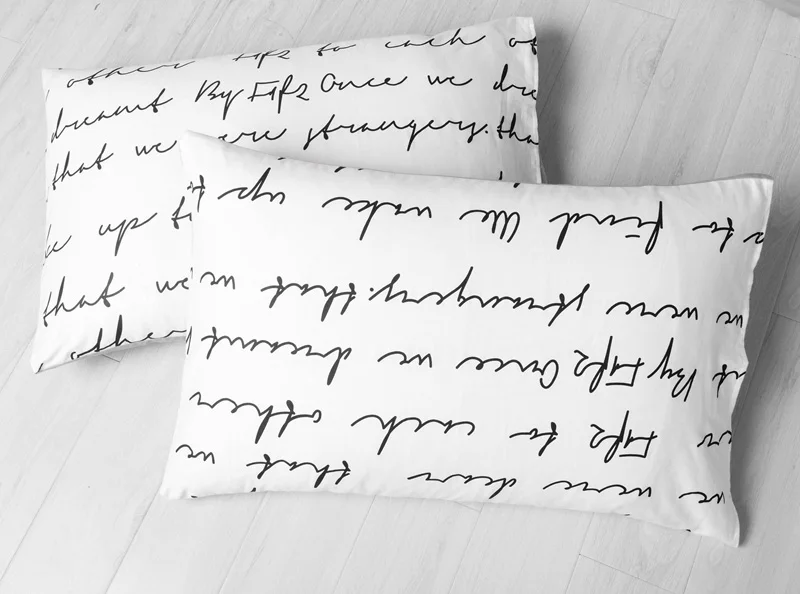 other to each ot
dreamt By Once we dre
that we were strangers. tha
ke up
that we
other
we were dear that we
to each other
By Once we dreamt
we were strangers. that we
to find We wake up